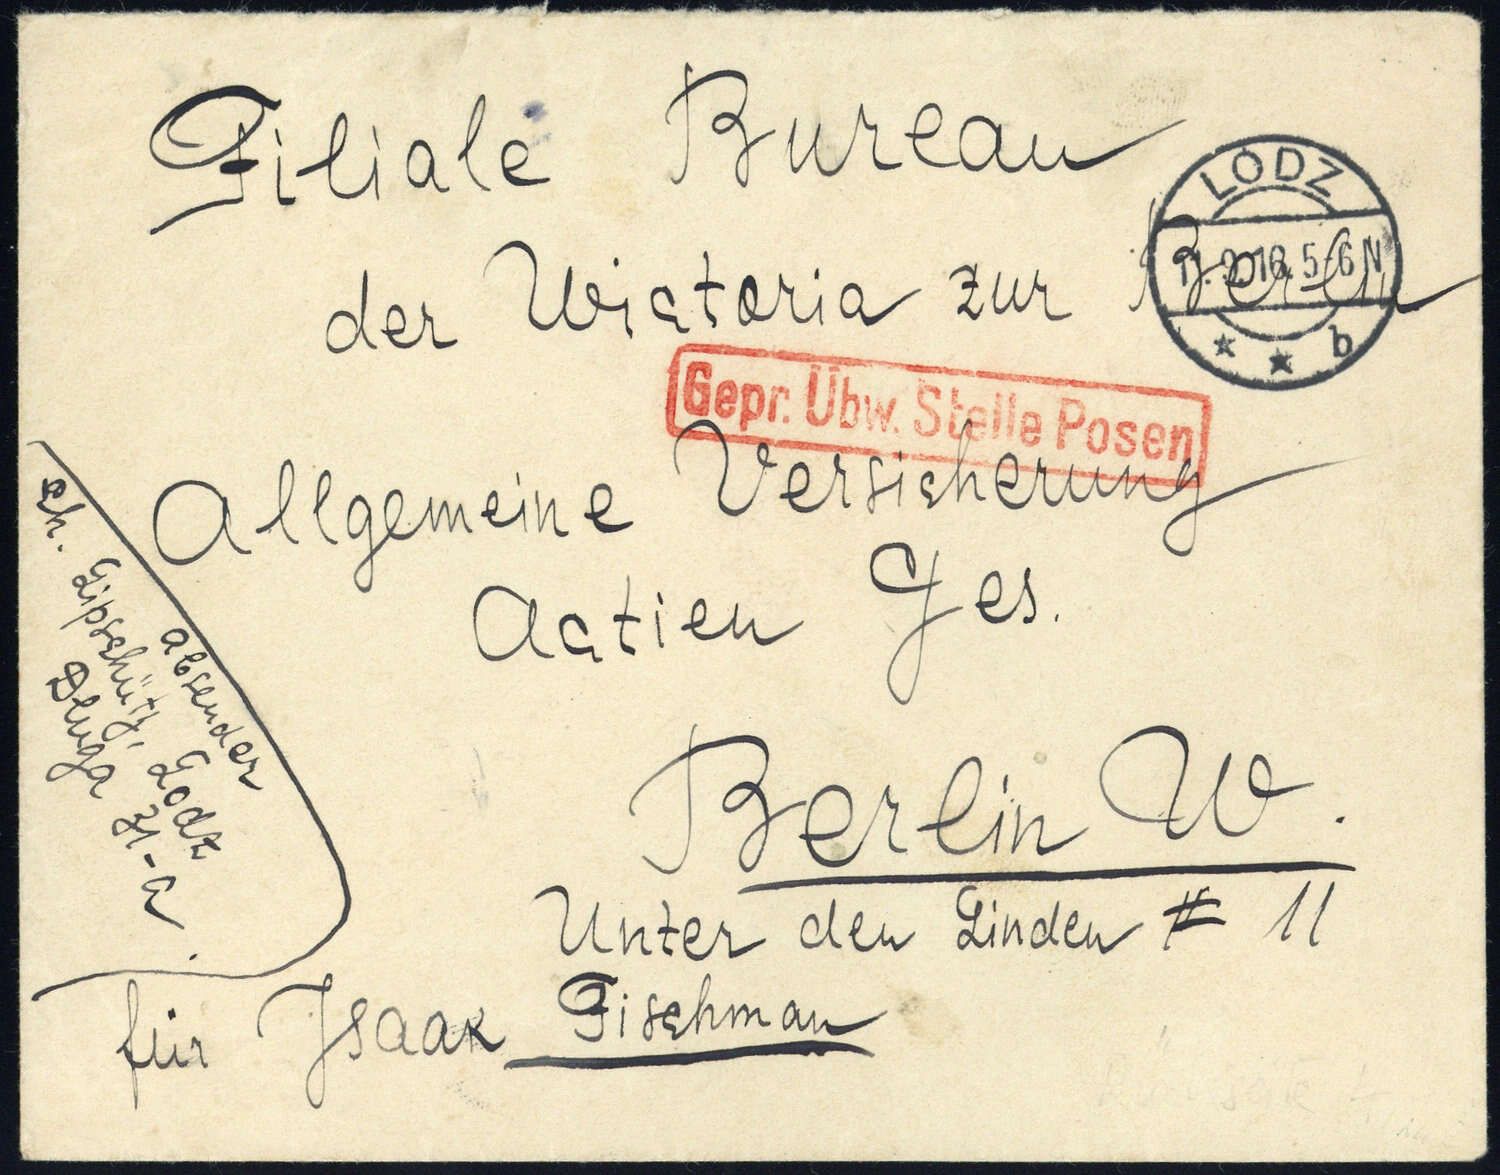 Filiale Bureau
der Wictoria zur Berlin
LODZ
11.2.16. 5-6 N
* * b
Gepr. Übw. Stelle Posen
Allgemeine Versicherung
Actien Ges.
Berlin W.
Unter den Linden # 11
für Isaak Fischman
absender
Ch. Lipschütz, Lodz
Dluga 31-a